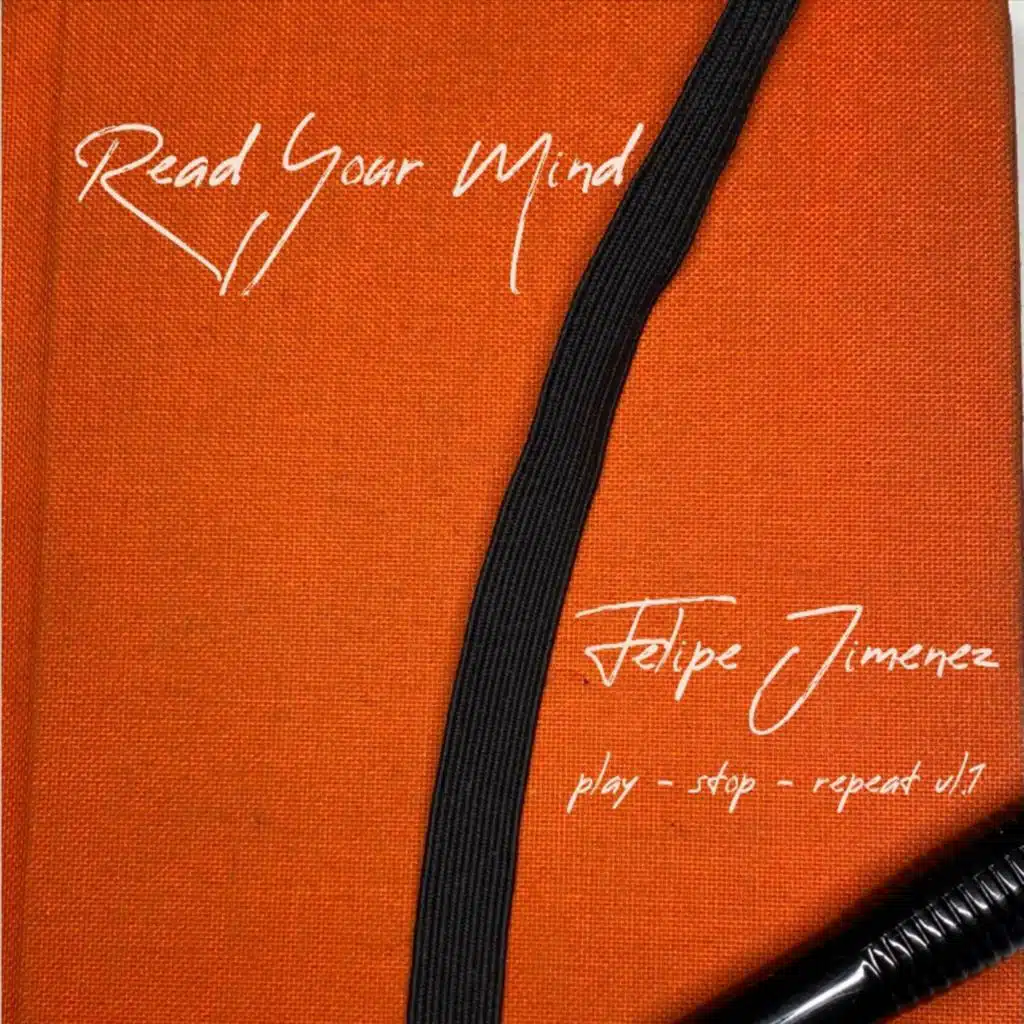 Read Your Mind
Felipe Jimenez
play - stop - repeat vl.1